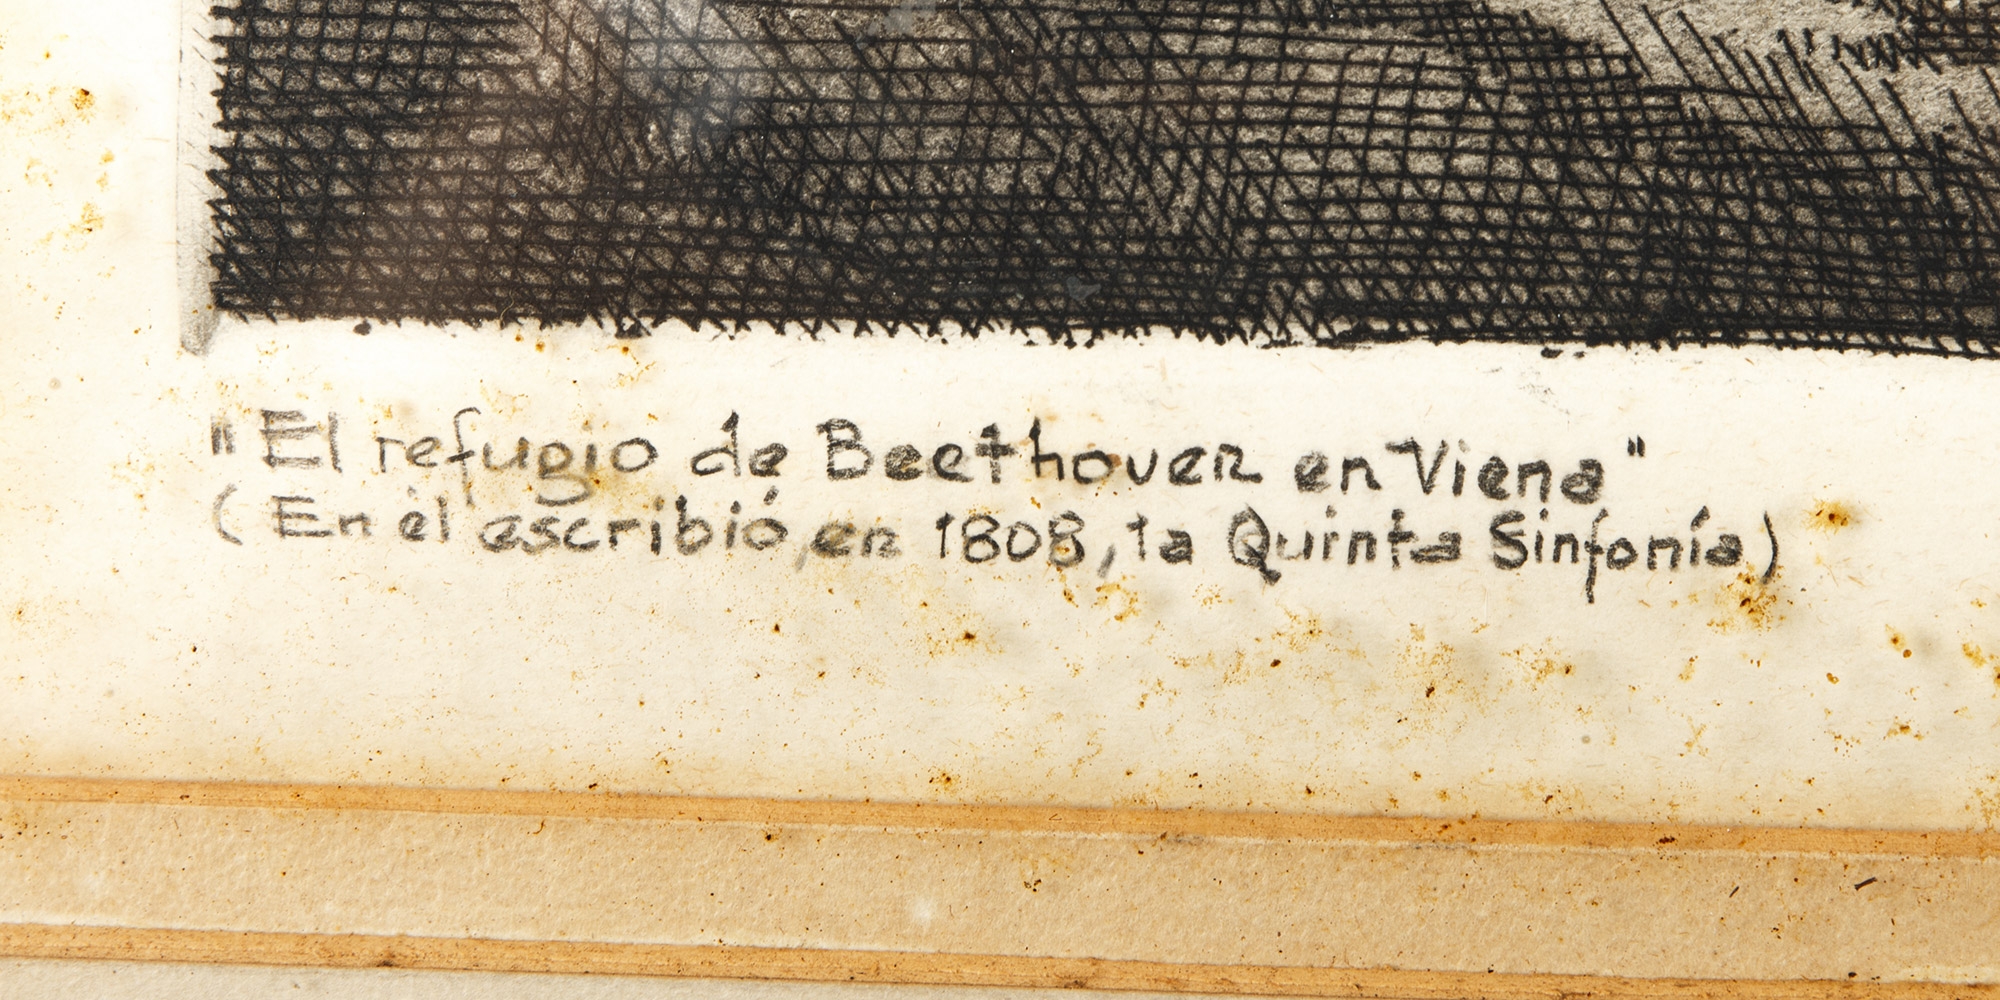 "El refugio de Beethoven en Viena"
(En él escribió, en 1808, la Quinta Sinfonía)